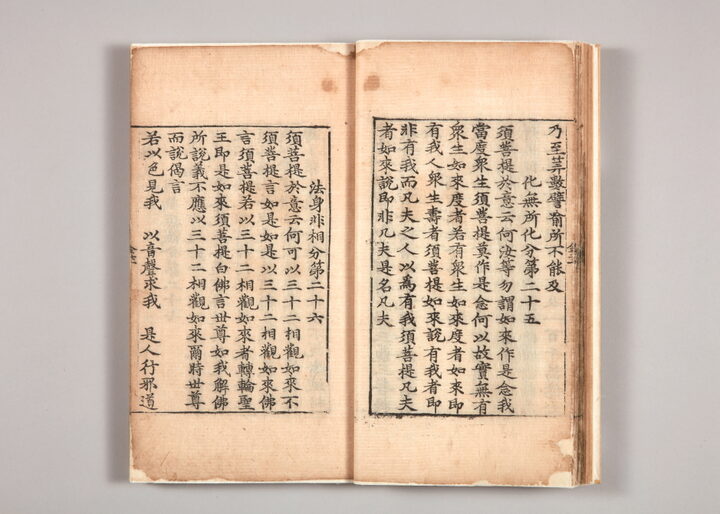 乃至筭數譬喻所不能及
化無所化分第二十五
須菩提於意云何汝等勿謂如來作是念我
當度衆生須菩提莫作是念何以故實無有
衆生如來度者若有衆生如來度者如來即
有我人衆生壽者須菩提如來說有我者即
非有我而凡夫之人以爲有我須菩提凡夫
者如來說即非凡夫是名凡夫
法身非相分第二十六
須菩提於意云何可以三十二相觀如來不
須菩提言如是如是以三十二相觀如來佛
言須菩提若以三十二相觀如來者轉輪聖
王即是如來須菩提白佛言世尊如我解佛
所說義不應以三十二相觀如來爾時世尊
而說偈言
若以色見我　以音聲求我　是人行邪道